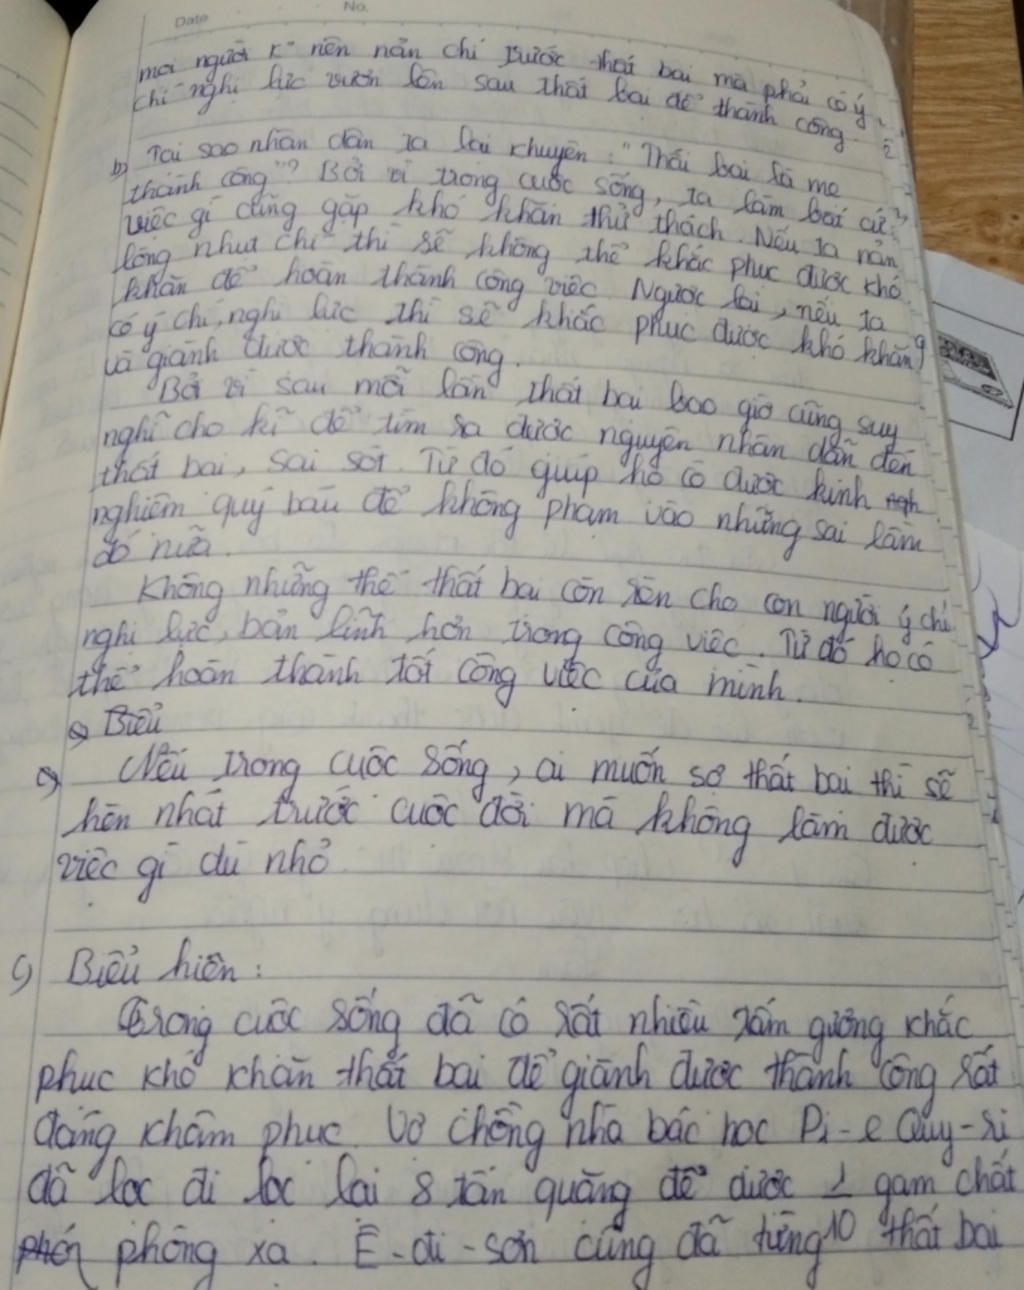 Date No.
mọi người k nên nản chí trước thất bại mà phải có ý
chí nghị lực vươn lên sau thất bại để thành công.
b) Tại sao nhân dân ta lại khuyên: "Thất bại là mẹ
thành công"? Bởi vì trong cuộc sống, ta làm bất cứ
việc gì cũng gặp khó khăn thử thách. Nếu ta nản
lòng nhụt chí thì sẽ không thể khắc phục được khó
khăn để hoàn thành công việc. Ngược lại, nếu ta
có ý chí, nghị lực thì sẽ khắc phục được khó khăn
và giành được thành công.
Bởi vì sau mỗi lần thất bại bao giờ cũng suy
nghĩ cho kĩ để tìm ra được nguyên nhân dẫn đến
thất bại, sai sót. Từ đó giúp họ có được kinh ngh
nghiệm quý báu để không phạm vào những sai lầm
đó nữa.
Không những thế thất bại còn rèn cho con người ý chí
nghị lực, bản lĩnh hơn trong công việc. Từ đó họ có
thể hoàn thành tốt công việc của mình.
Biểu
Nếu trong cuộc sống, ai muốn sợ thất bại thì sẽ
hèn nhát trước cuộc đời mà không làm được
việc gì dù nhỏ
c) Biểu hiện:
Trong cuộc sống đã có rất nhiều tấm gương khắc
phục khó khăn thất bại để giành được thành công rất
đáng khâm phục. Vợ chồng nhà bác học Pi-e Quy-ri
đã lọc đi lọc lại 8 tấn quặng để được 1 gam chất
phóng xạ. Ê-đi-sơn cũng đã từng 10 thất bại